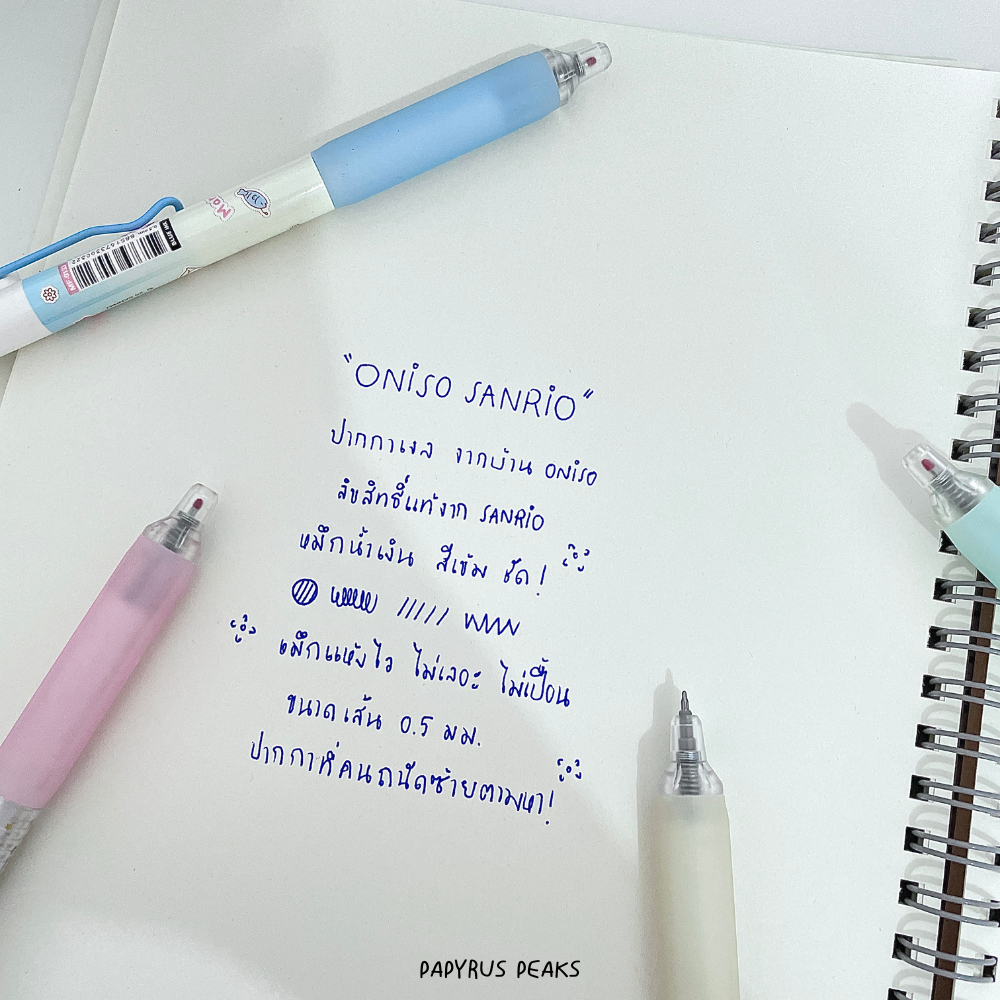 "ONiSO SANRiO"
ปากกาเจล จากบ้าน ONiSO
ลิขสิทธิ์แท้จาก SANRiO
หมึกน้ำเงิน สีเข้ม ชัด!
หมึกแห้งไว ไม่เลอะ ไม่เปื้อน
ขนาดเส้น 0.5 มม.
ปากกาที่คนถนัดซ้ายตามหา!
BLUE INK
PAPYRUS PEAKS